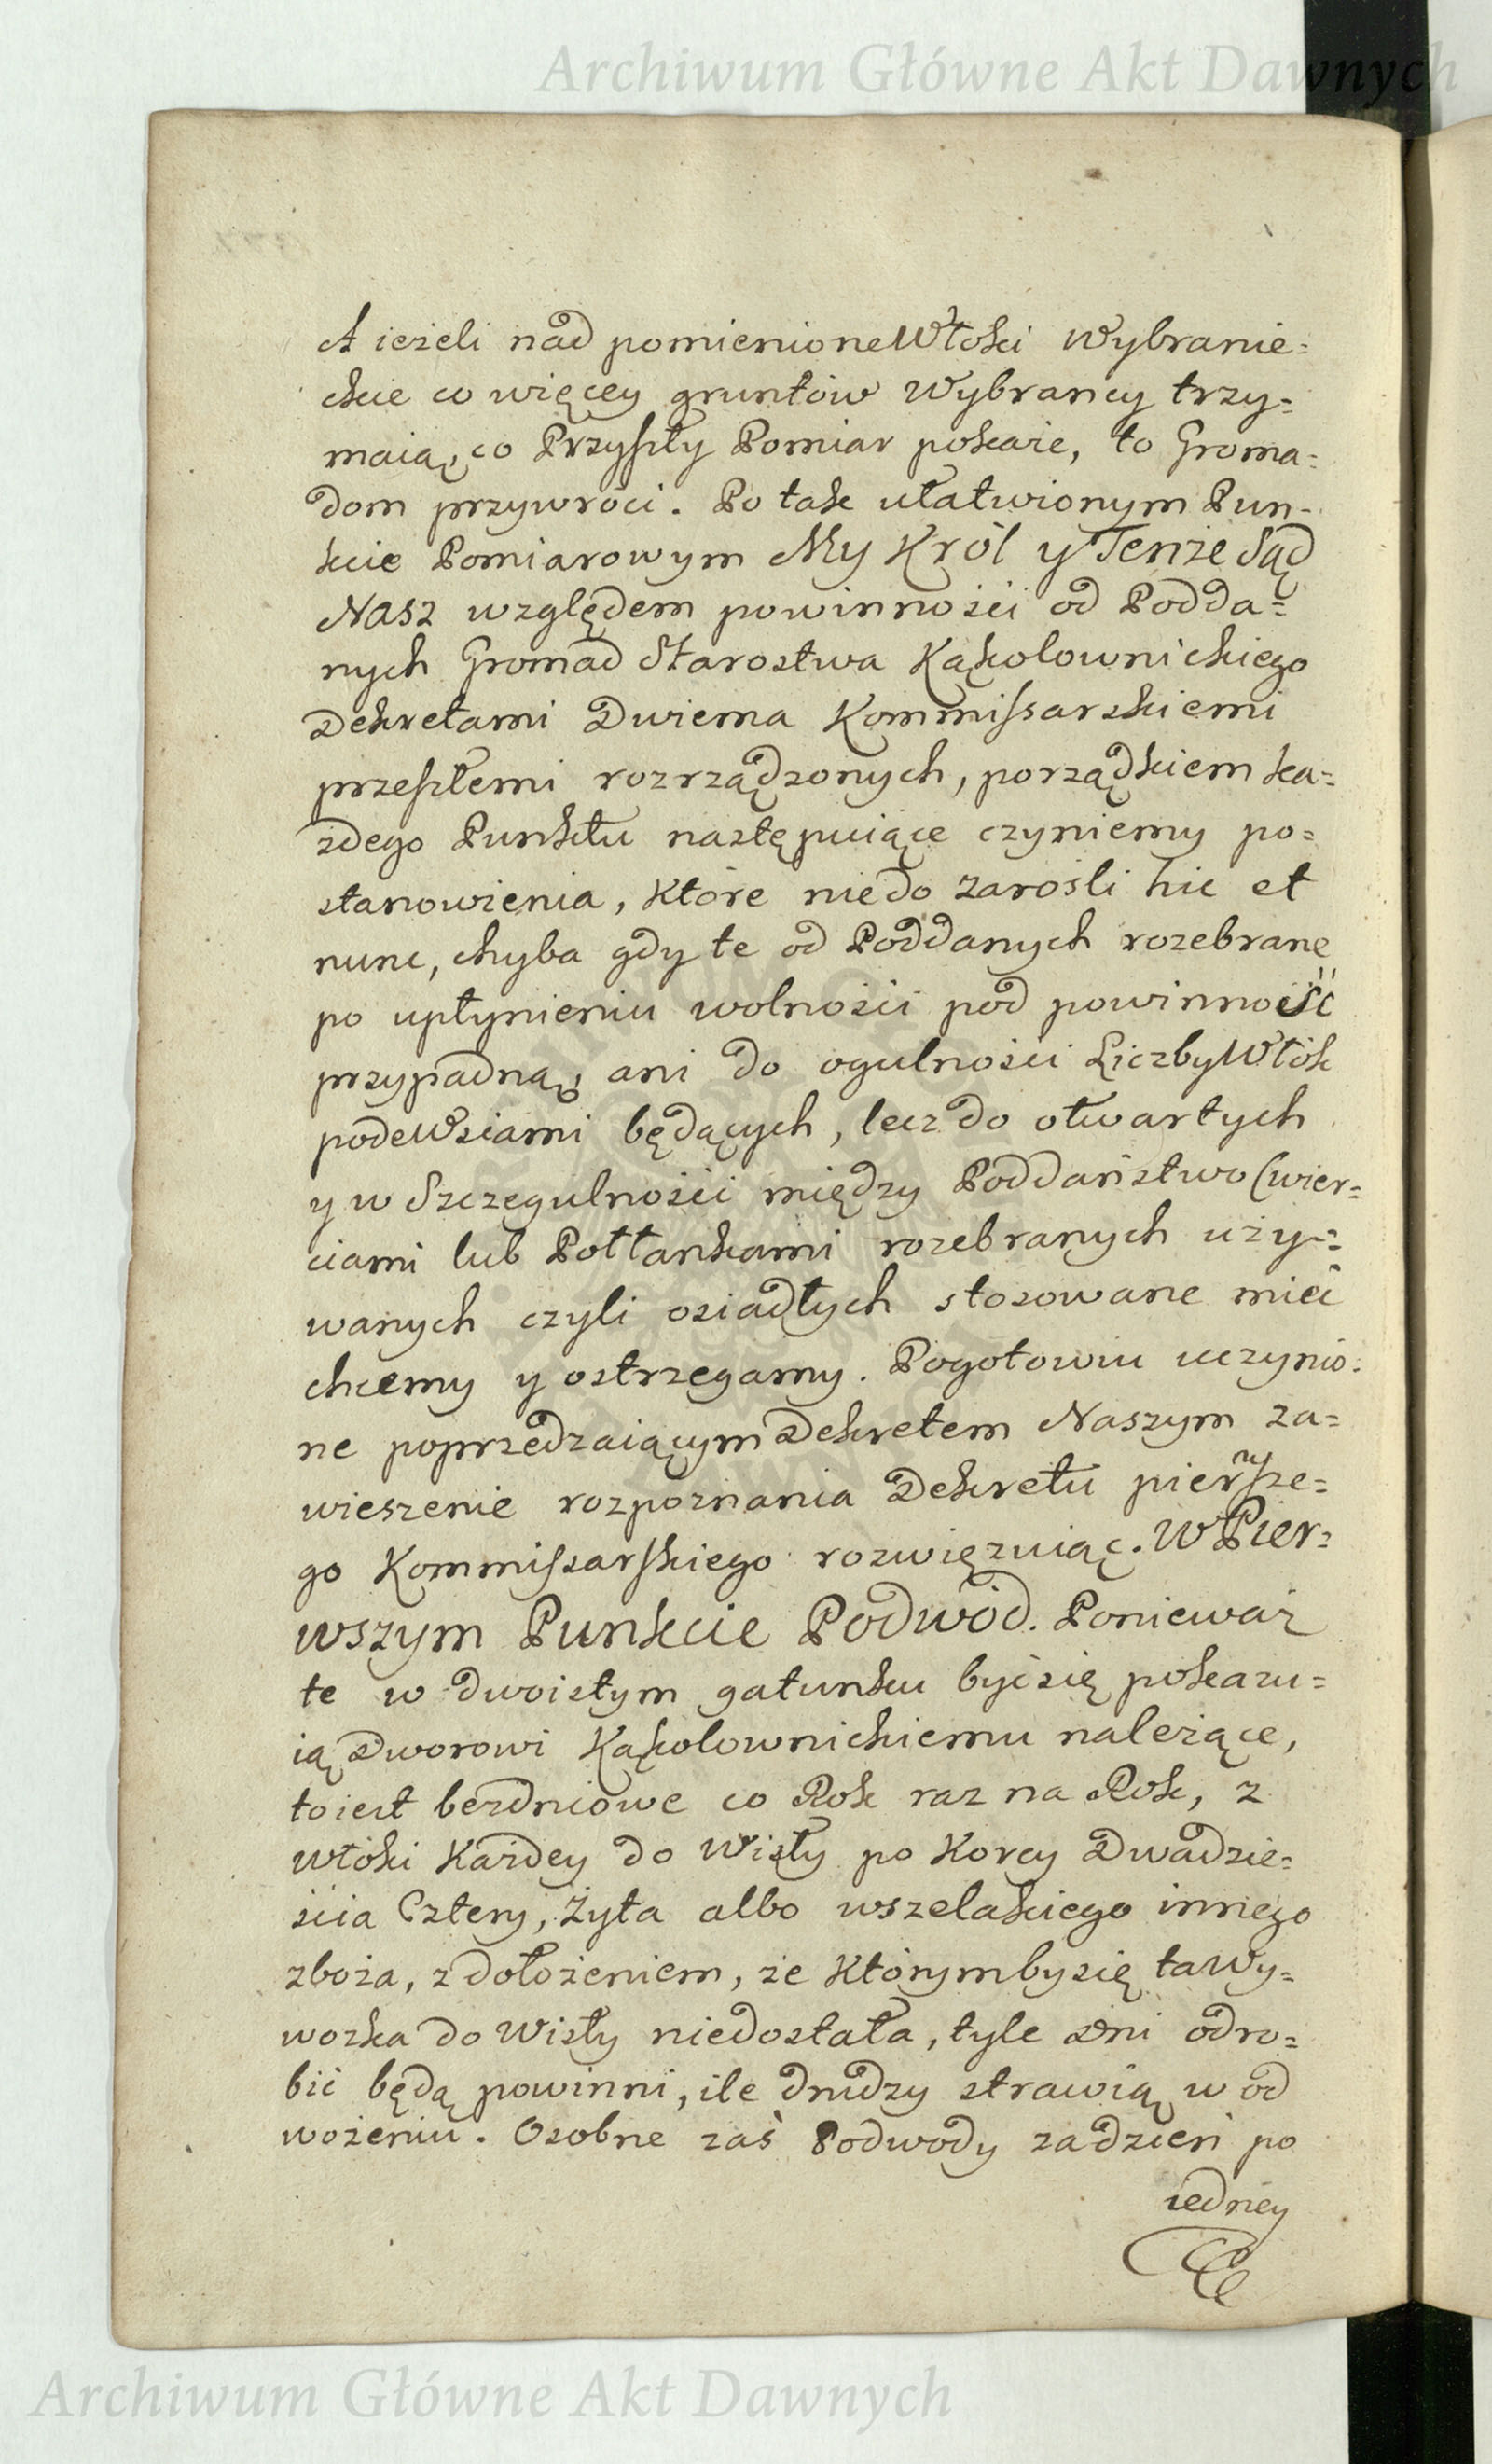 Archiwum Główne Akt Dawnych
A ieżeli nad pomienione Włoki Wybranie=
ckie co więcey gruntów Wybrańcy trzy=
maią, co Przyszły Pomiar pokaże, to Groma=
dom przywróci. Po tak ułatwionym Pun=
kcie Pomiarowym My Król y Tenże Sąd
Nasz względem powinności od Podda=
nych Gromad Starostwa Kąkolownickiego
Dekretami Dwiema Kommissarskiemi
przeszłemi rozrządzonych, porządkiem ka=
żdego Punktu następuiące czyniemy po=
stanowienia, które nie do zarośli hic et
nunc, chyba gdy te od Poddanych rozebrane
po upłynieniu wolności pod powinność
przypadną, ani do ogulności Liczby Włók
pode Wsiami będących, lecz do otwartych
y w Szczegulności między Poddaństwo Cwier=
ciami lub Półłankami rozebranych uży=
wanych czyli osiadłych stosowane mieć
chcemy y ostrzegamy. Pogotowiu uczynio=
ne poprzedzaiącym Dekretem Naszym za=
wieszenie rozpoznania Dekretu pierwsze=
go Kommissarskiego rozwięzuiąc. W Pier=
wszym Punkcie Podwód. Ponieważ
te w dwoistym gatunku być się pokazu=
ią Dworowi Kąkolownickiemu należące,
to iest bezdniowe co Rok raz na Rok, z
włóki Każdey do Wisły po Korcy Dwadzie=
ścia Cztery, Żyta albo wszelakiego innego
zboża, z dołożeniem, że którymby się ta Wy=
wozka do Wisły niedostała, tyle dni odro=
bić będą powinni, ile drudzy strawią w od
wożeniu. Osobne zaś Podwody za dzień po
iedney
Archiwum Główne Akt Dawnych